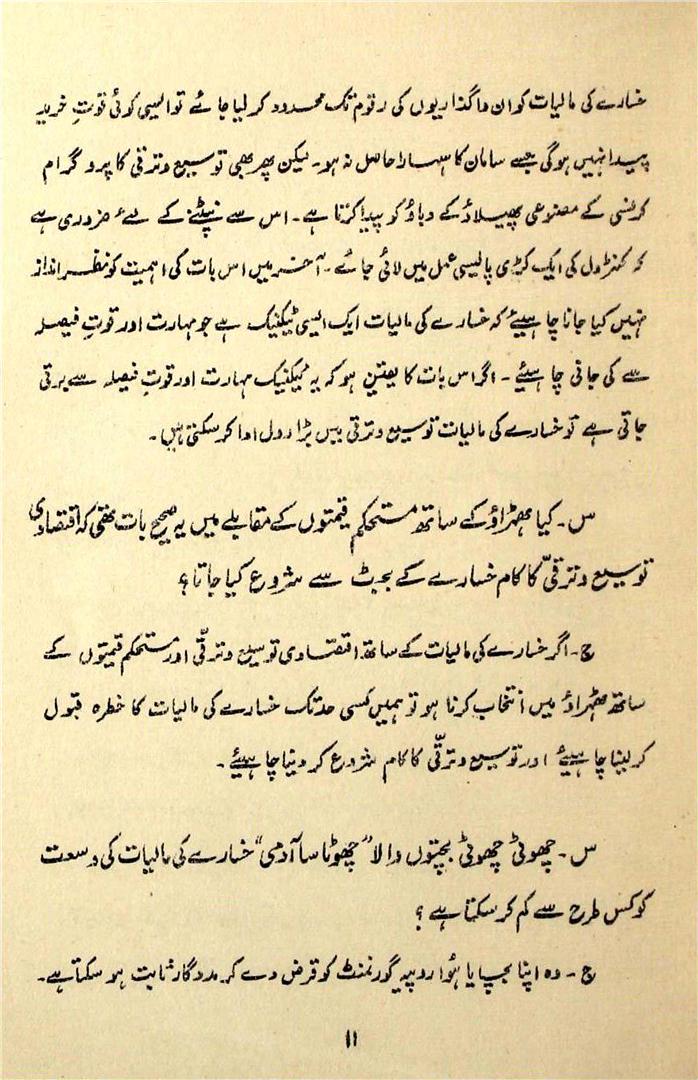 خسارے کی مالیات کو ان واگذاریوں کی رقوم تک محدود کر لیا جائے تو ایسی کوئی قوّتِ خرید
پیدا نہیں ہوگی جسے سامان کا سہارا حاصل نہ ہو۔ لیکن پھر بھی توسیع و ترقی کا پروگرام
کرنسی کے مصنوعی پھیلاؤ کے دباؤ کو پیدا کرتا ہے۔ اس سے نپٹنے کے لئے ضروری ہے
کہ کنٹرول کی ایک کڑی پالیسی عمل میں لائی جائے۔ آخر میں اس بات کی اہمیت کو نظر انداز
نہیں کیا جانا چاہیئے کہ خسارے کی مالیات ایک ایسی ٹیکنیک ہے جو مہارت اور قوتِ فیصلہ
سے کی جانی چاہئیے۔ اگر اس بات کا یقین ہو کہ یہ ٹیکنیک مہارت اور قوتِ فیصلہ سے برتی
جاتی ہے تو خسارے کی مالیات توسیع و ترقی میں بڑا رول ادا کر سکتی ہیں۔
س۔ کیا ٹھہراؤ کے ساتھ مستحکم قیمتوں کے مقابلے میں یہ صحیح بات تھی کہ اقتصادی
توسیع و ترقیّ کا کام خسارے کے بجٹ سے شروع کیا جاتا؟
ج۔ اگر خسارے کی مالیات کے ساتھ اقتصادی توسیع و ترقّی اور مستحکم قیمتوں کے
ساتھ ٹھہراؤ میں انتخاب کرنا ہو تو ہمیں کسی حد تک خسارے کی مالیات کا خطرہ قبول
کر لینا چاہیئے اور توسیع و ترقّی کا کام شروع کر دینا چاہیئے۔
س۔ چھوٹی چھوٹی بچتوں والا "چھوٹا سا آدمی" خسارے کی مالیات کی وسعت
کو کس طرح سے کم کر سکتا ہے؟
ج۔ وہ اپنا بچایا ہُوا روپیہ گورنمنٹ کو قرض دے کر مددگار ثابت ہو سکتا ہے۔
۱۱